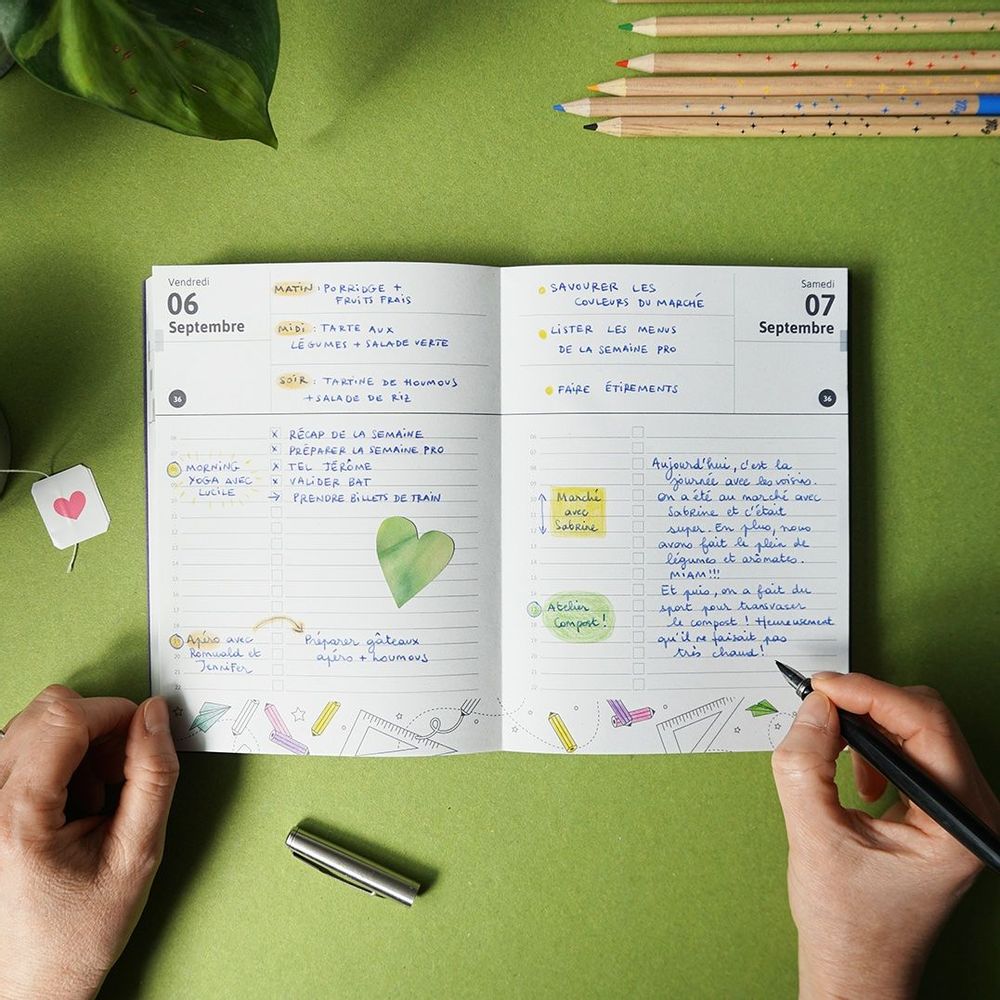 Vendredi
06
Septembre
36
MATIN : PORRIDGE +
FRUITS FRAIS
MIDI : TARTE AUX
LÉGUMES + SALADE VERTE
SOIR : TARTINE DE HOUMOUS
+ SALADE DE RIZ
RÉCAP DE LA SEMAINE
PRÉPARER LA SEMAINE PRO
TEL JÉRÔME
VALIDER BAT
PRENDRE BILLETS DE TRAIN
MORNING
YOGA AVEC
LUCILE
Apéro avec
Romuald et
Jennifer
Préparer gâteaux
apéro + houmous
Samedi
07
Septembre
36
SAVOURER LES
COULEURS DU MARCHÉ
LISTER LES MENUS
DE LA SEMAINE PRO
FAIRE ÉTIREMENTS
Marché
avec
Sabrine
Atelier
Compost !
Aujourd'hui, c'est la
journée avec les voisins.
On a été au marché avec
Sabrine et c'était
super. En plus, nous
avons fait le plein de
légumes et arômates.
MIAM!!!
Et puis, on a fait du
sport pour transvaser
le compost ! Heureusement
qu'il ne faisait pas
très chaud !